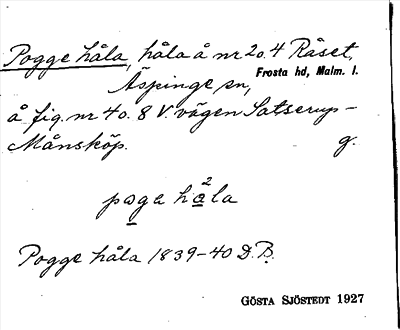 Pogge håla, håla å nr 2 o. 4 Råset,
Frosta hd, Malm. l.
Äspinge sn,
å fig. nr 4 o. 8 V. vägen Satserup-
Månsköp. g.
pɔgə hå²la
Pogge håla 1839-40 D.B.
GÖSTA SJÖSTEDT 1927